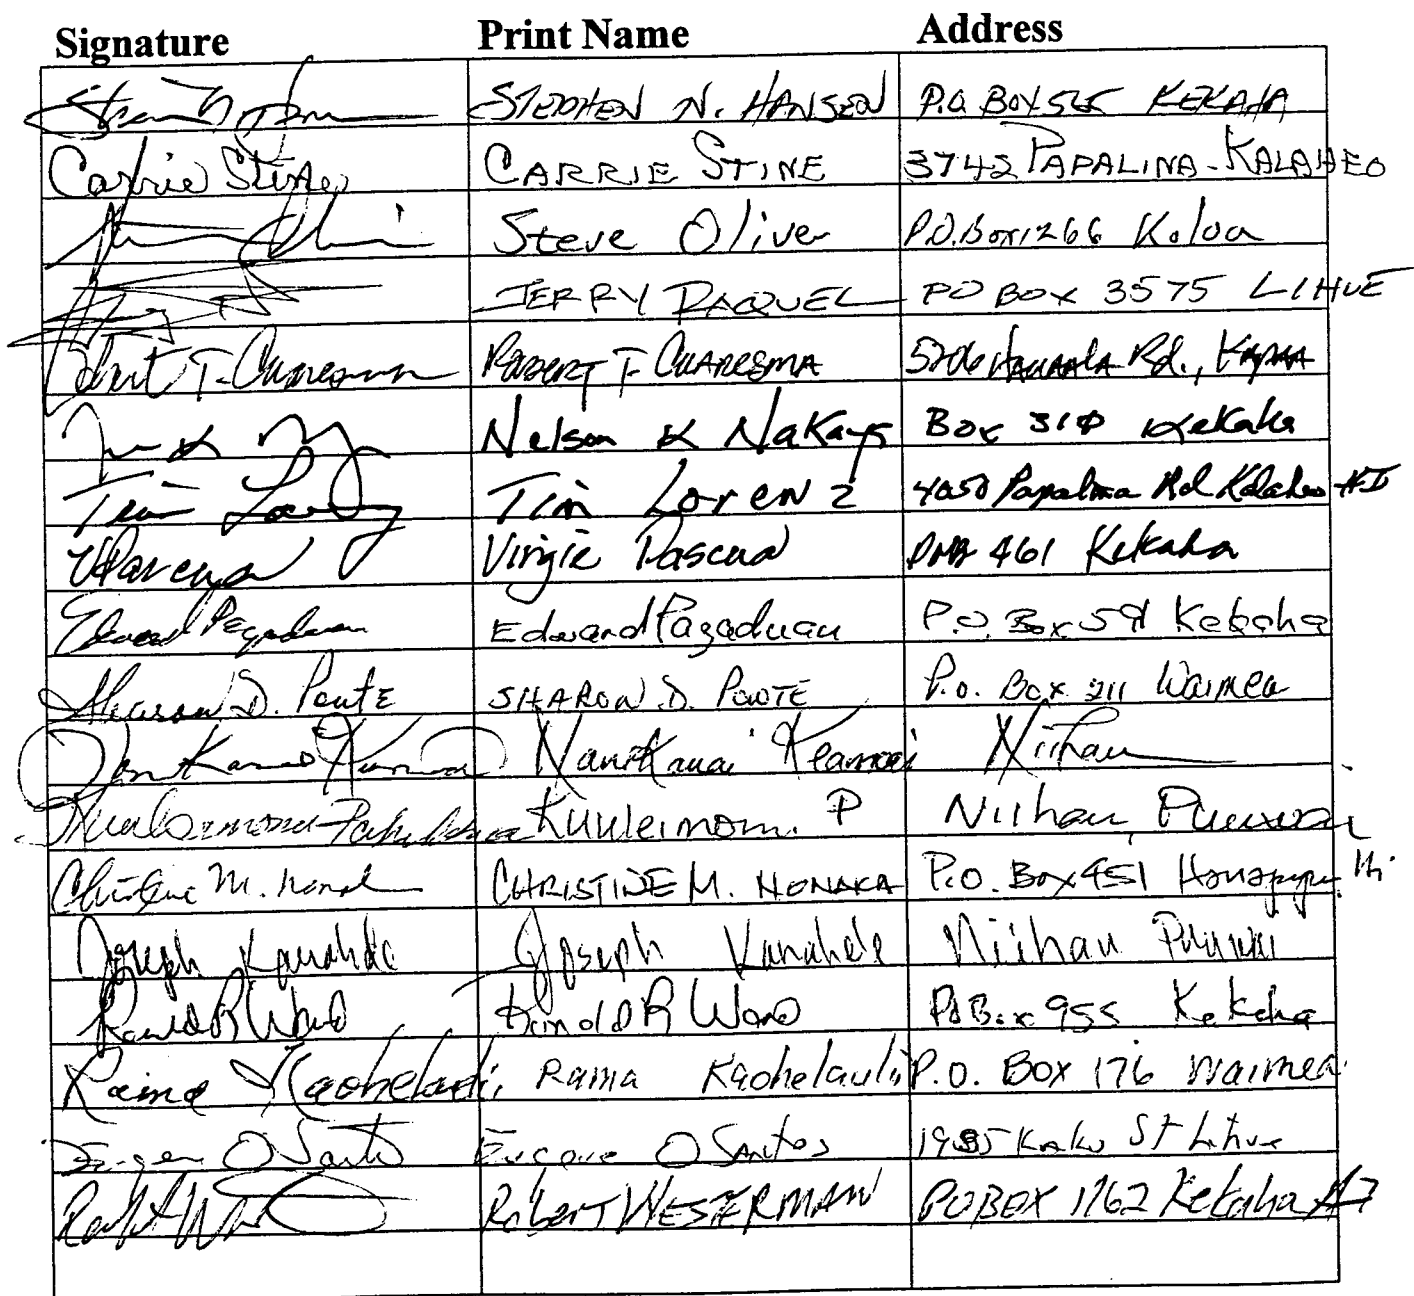 Signature Print Name Address
STEPHEN N. HANSEN P.O. BOX 565 KEKAHA
Carrie Stine CARRIE STINE 3742 PAPALINA - KALAHEO
Steve Oliver P.O. Box 1266 Koloa
JERRY RAQUEL PO BOX 3575 LIHUE
Robert T. Cuaresma ROBERT T. CUARESMA Rd., KAPAA
Nelson K Nakaya Box 310 Kekaha
Tim Lorenz Tim Lorenz 4050 Papalina Rd Kalaheo HI
VPascua Virgie Pascua 461 Kekaha
Edward Pagaduan Edward Pagaduan P.O. Box 59 Kekaha
Sharon D. Poute SHARON D. POUTE P.O. Box 311 Waimea
Niihau
Kuuleimomi P Niihau, Puuwai
Christine M. Nonaka CHRISTINE M. NONAKA P.O. Box 451 Hanapepe Hi
Joseph Kanahele Joseph Kanahele Niihau Puuwai
Ronald R Ward Ronald R Ward PO Box 955 Kekaha
Rama Kaohelaulii Rama Kaohelaulii P.O. Box 176 Waimea
Eugene O Santos Eugene O Santos St Lihue
Robert WESTERMAN PO BOX 1762 Kekaha HI